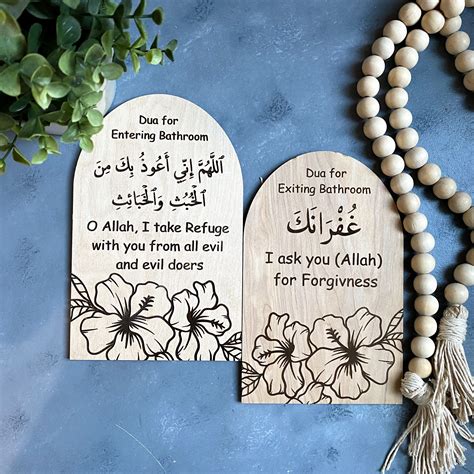 Dua for
Entering Bathroom
اَللّٰهُمَّ إِنِّي أَعُوْذُ بِكَ مِنَ
الْخُبُثِ وَالْخَبَائِثِ
O Allah, I take Refuge
with you from all evil
and evil doers
Dua for
Exiting Bathroom
غُفْرَانَكَ
I ask you (Allah)
for Forgivness